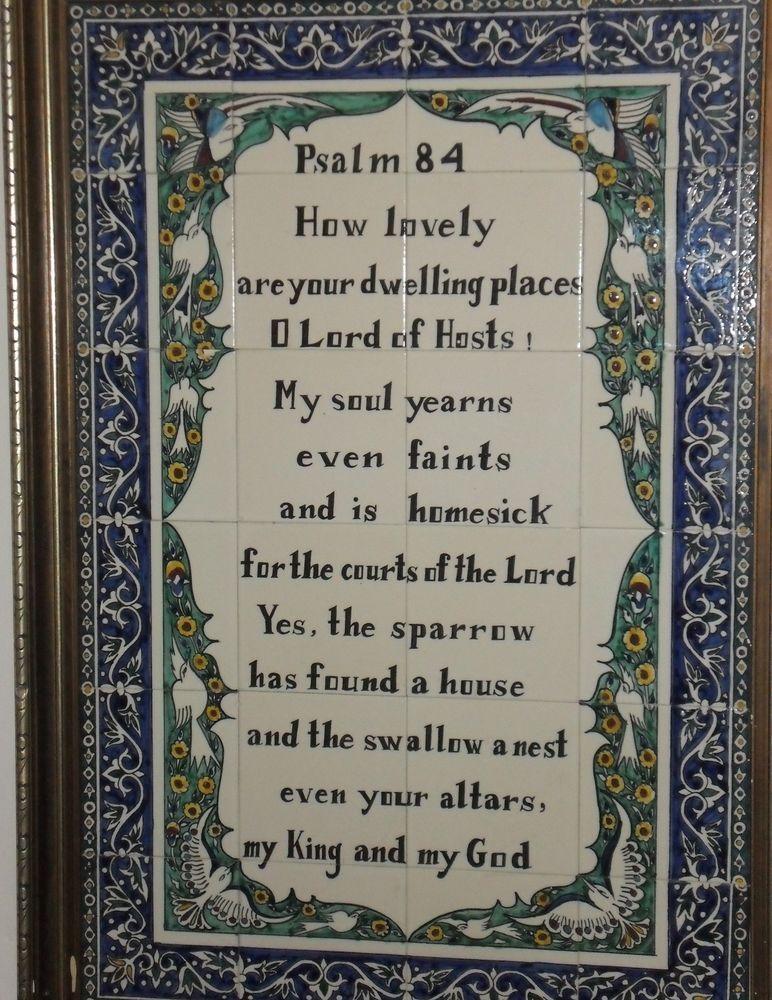 Psalm 84
How lovely
are your dwelling places
O Lord of Hosts !
My soul yearns
even faints
and is homesick
for the courts of the Lord
Yes, the sparrow
has found a house
and the swallow a nest
even your altars,
my King and my God